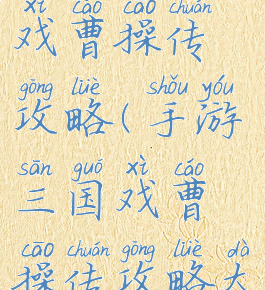 xì cáo cāo chuán
戏曹操传
gōng lüè shǒu yóu
攻略(手游
sān guó xì cáo
三国戏曹
cāo chuán gōng lüè dà
操传攻略大